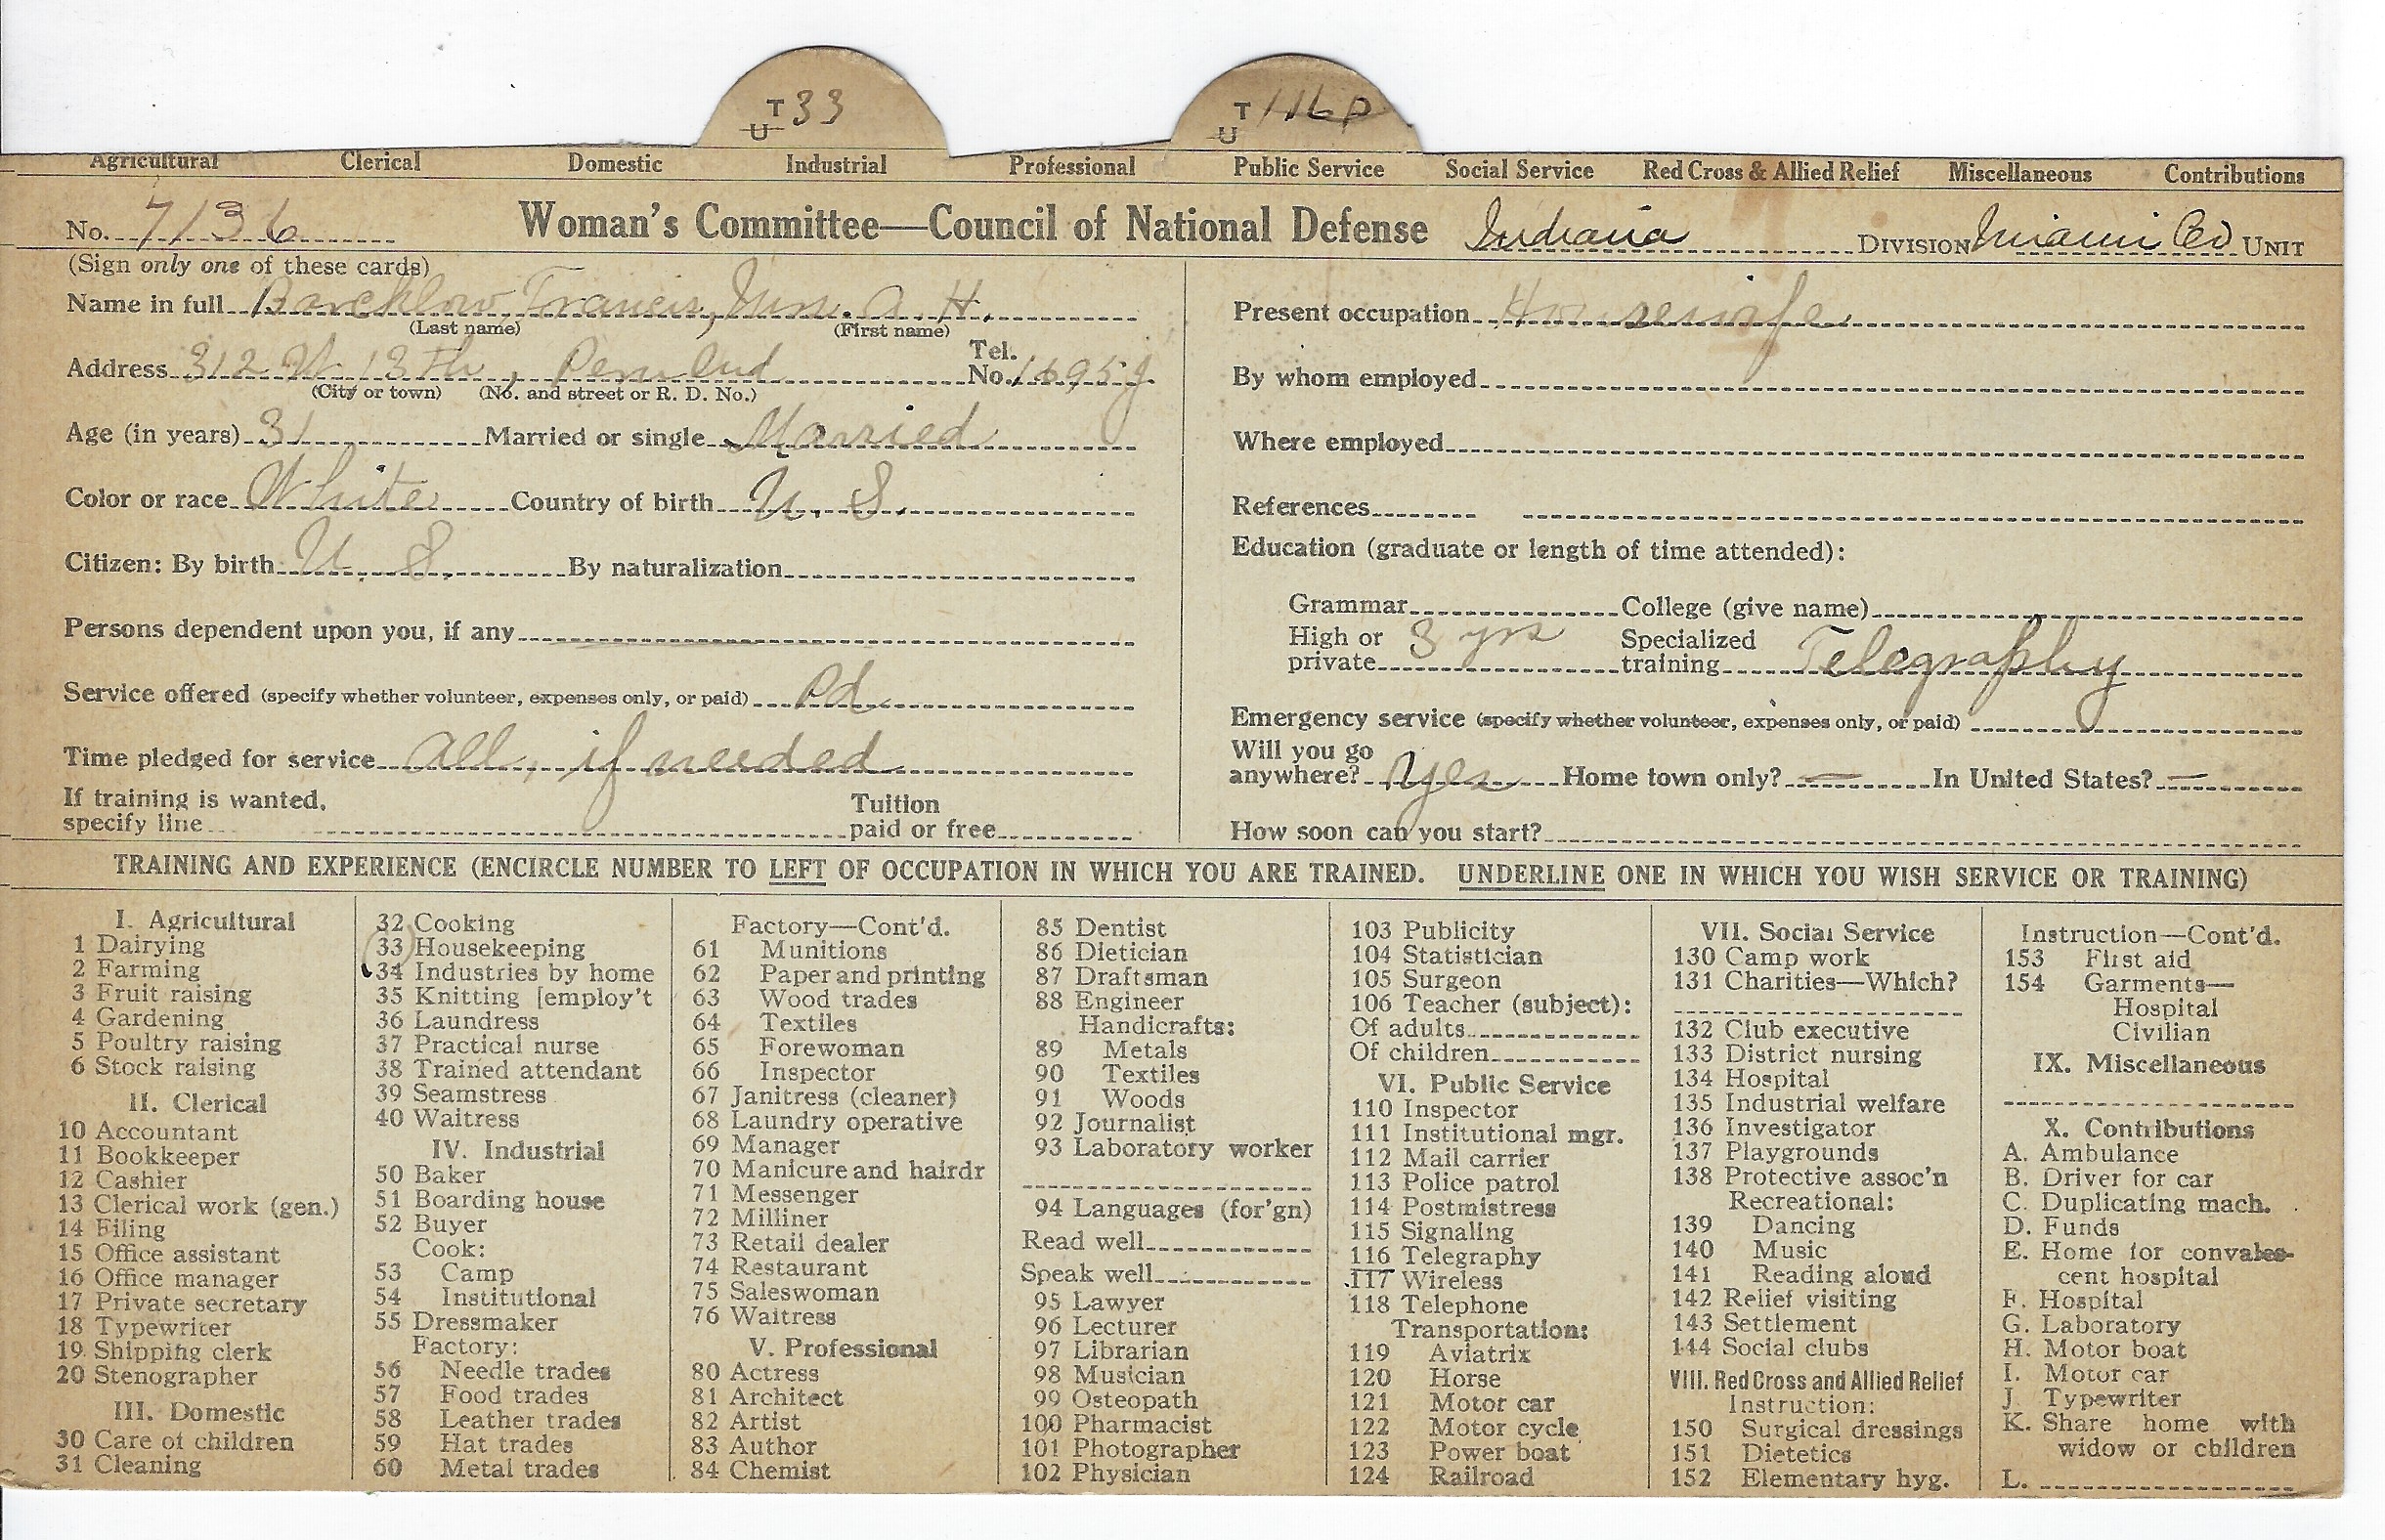 T
U 33
T
U 116 P
Agricultural Clerical Domestic Industrial Professional Public Service Social Service Red Cross & Allied Relief Miscellaneous Contributions
No. 7136 Woman's Committee—Council of National Defense Indiana DIVISION Miami Co UNIT
(Sign only one of these cards)
Name in full Barcklow Francis, Mrs. A. H.
(Last name) (First name)
Address 312 W. 13th, Peru Ind Tel. No. 1695J
(City or town) (No. and street or R. D. No.)
Age (in years) 31 Married or single Married
Color or race White Country of birth U. S.
Citizen: By birth U. S. By naturalization
Persons dependent upon you, if any
Service offered (specify whether volunteer, expenses only, or paid) Pd
Time pledged for service All, if needed
If training is wanted, specify line Tuition paid or free
Present occupation Housewife
By whom employed
Where employed
References
Education (graduate or length of time attended):
Grammar College (give name)
High or private 3 yrs Specialized training Telegraphy
Emergency service (specify whether volunteer, expenses only, or paid)
Will you go anywhere? Yes Home town only? — In United States? —
How soon can you start?
TRAINING AND EXPERIENCE (ENCIRCLE NUMBER TO LEFT OF OCCUPATION IN WHICH YOU ARE TRAINED. UNDERLINE ONE IN WHICH YOU WISH SERVICE OR TRAINING)
I. Agricultural
1 Dairying
2 Farming
3 Fruit raising
4 Gardening
5 Poultry raising
6 Stock raising
II. Clerical
10 Accountant
11 Bookkeeper
12 Cashier
13 Clerical work (gen.)
14 Filing
15 Office assistant
16 Office manager
17 Private secretary
18 Typewriter
19 Shipping clerk
20 Stenographer
III. Domestic
30 Care of children
31 Cleaning
32 Cooking
33 Housekeeping
34 Industries by home
35 Knitting [employ't
36 Laundress
37 Practical nurse
38 Trained attendant
39 Seamstress
40 Waitress
IV. Industrial
50 Baker
51 Boarding house
52 Buyer
Cook:
53 Camp
54 Institutional
55 Dressmaker
Factory:
56 Needle trades
57 Food trades
58 Leather trades
59 Hat trades
60 Metal trades
Factory—Cont'd.
61 Munitions
62 Paper and printing
63 Wood trades
64 Textiles
65 Forewoman
66 Inspector
67 Janitress (cleaner)
68 Laundry operative
69 Manager
70 Manicure and hairdr
71 Messenger
72 Milliner
73 Retail dealer
74 Restaurant
75 Saleswoman
76 Waitress
V. Professional
80 Actress
81 Architect
82 Artist
83 Author
84 Chemist
85 Dentist
86 Dietician
87 Draftsman
88 Engineer
Handicrafts:
89 Metals
90 Textiles
91 Woods
92 Journalist
93 Laboratory worker
94 Languages (for'gn)
Read well
Speak well
95 Lawyer
96 Lecturer
97 Librarian
98 Musician
99 Osteopath
100 Pharmacist
101 Photographer
102 Physician
103 Publicity
104 Statistician
105 Surgeon
106 Teacher (subject):
Of adults
Of children
VI. Public Service
110 Inspector
111 Institutional mgr.
112 Mail carrier
113 Police patrol
114 Postmistress
115 Signaling
116 Telegraphy
117 Wireless
118 Telephone
Transportation:
119 Aviatrix
120 Horse
121 Motor car
122 Motor cycle
123 Power boat
124 Railroad
VII. Social Service
130 Camp work
131 Charities—Which?
132 Club executive
133 District nursing
134 Hospital
135 Industrial welfare
136 Investigator
137 Playgrounds
138 Protective assoc'n
Recreational:
139 Dancing
140 Music
141 Reading aloud
142 Relief visiting
143 Settlement
144 Social clubs
VIII. Red Cross and Allied Relief
Instruction:
150 Surgical dressings
151 Dietetics
152 Elementary hyg.
Instruction—Cont'd.
153 First aid
154 Garments—
Hospital
Civilian
IX. Miscellaneous
X. Contributions
A. Ambulance
B. Driver for car
C. Duplicating mach.
D. Funds
E. Home for convales-
cent hospital
F. Hospital
G. Laboratory
H. Motor boat
I. Motor car
J. Typewriter
K. Share home with
widow or children
L.